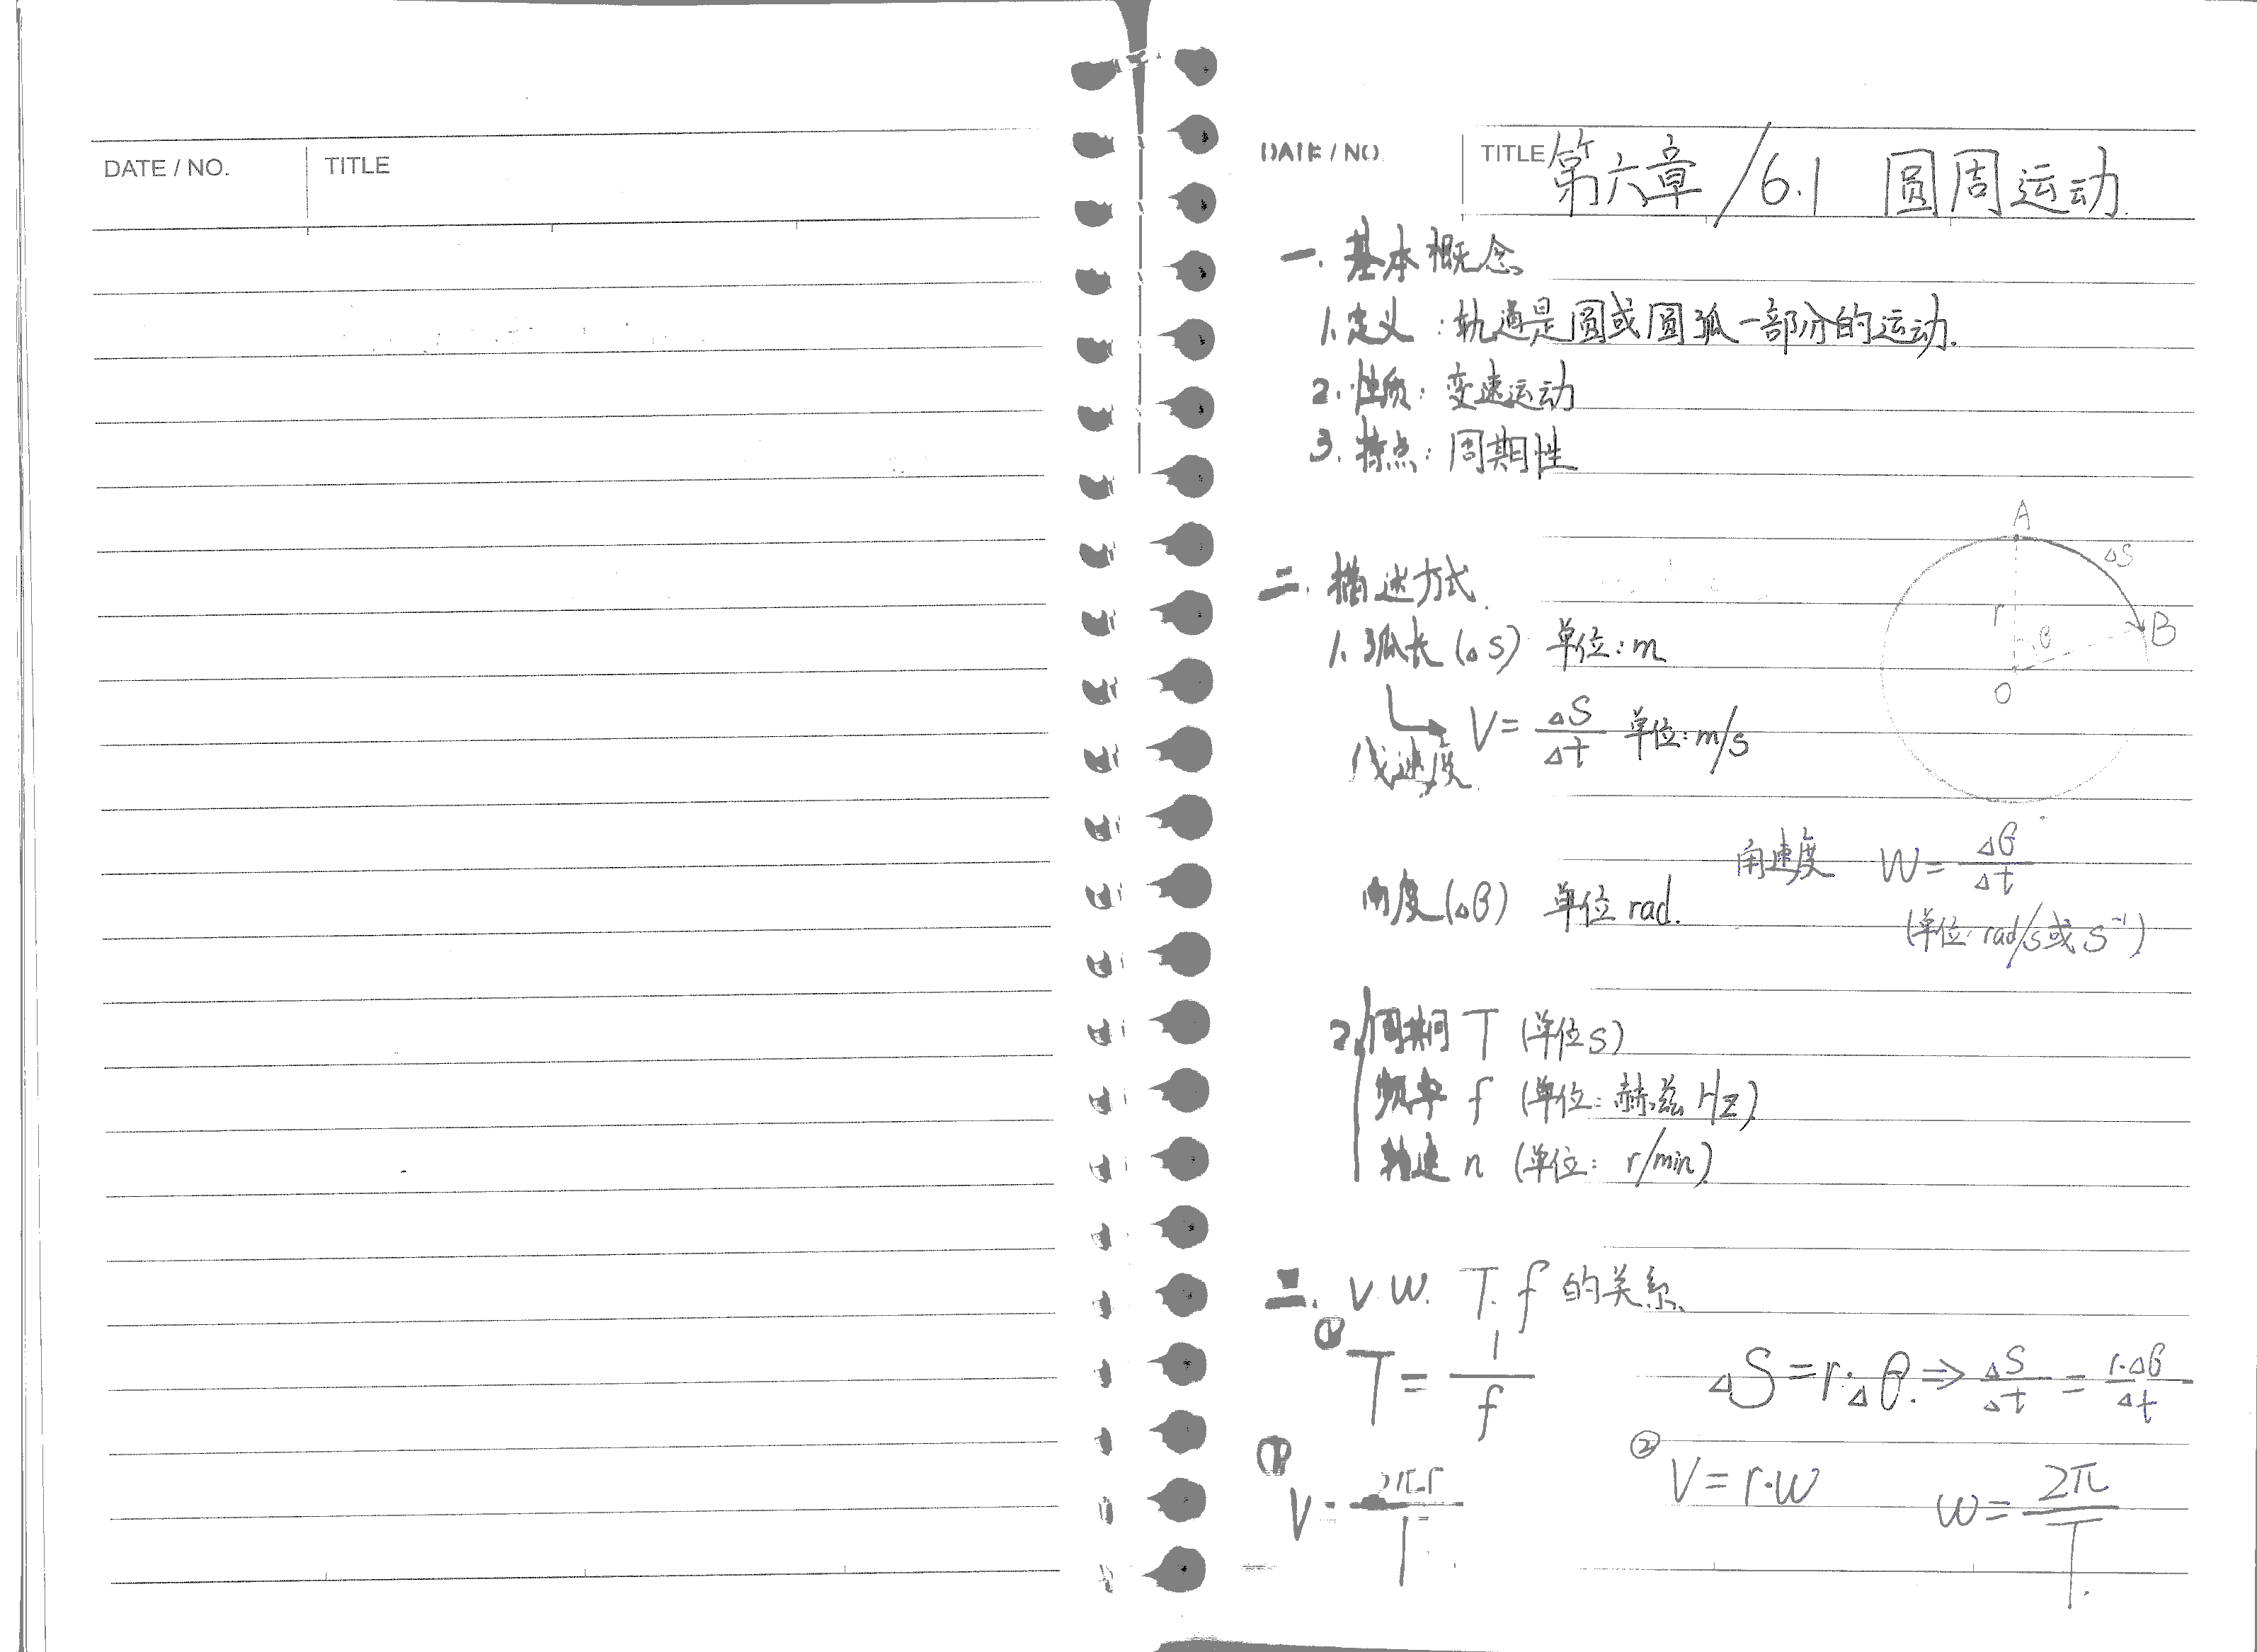 DATE / NO. TITLE
DATE / NO. TITLE 第六章 / 6.1 圆周运动.
一. 基本概念
1. 定义：轨道是圆或圆弧一部分的运动.
2. 性质：变速运动
3. 特点：周期性
A
ΔS
二. 描述方式.
r
θ
B
1. 弧长 (ΔS) 单位：m
O
V = ΔS/Δt 单位：m/s
线速度
角速度 W = Δθ/Δt
角度 (Δθ) 单位 rad.
(单位: rad/s 或 S⁻¹)
2. 周期 T (单位 S)
频率 f (单位：赫兹 Hz)
转速 n (单位：r/min)
三. V. W. T. f 的关系.
① T = 1/f
ΔS = r·Δθ. ⇒ ΔS/Δt = r·Δθ/Δt
① V = 2π·r/T
② V = r·W
W = 2π/T.